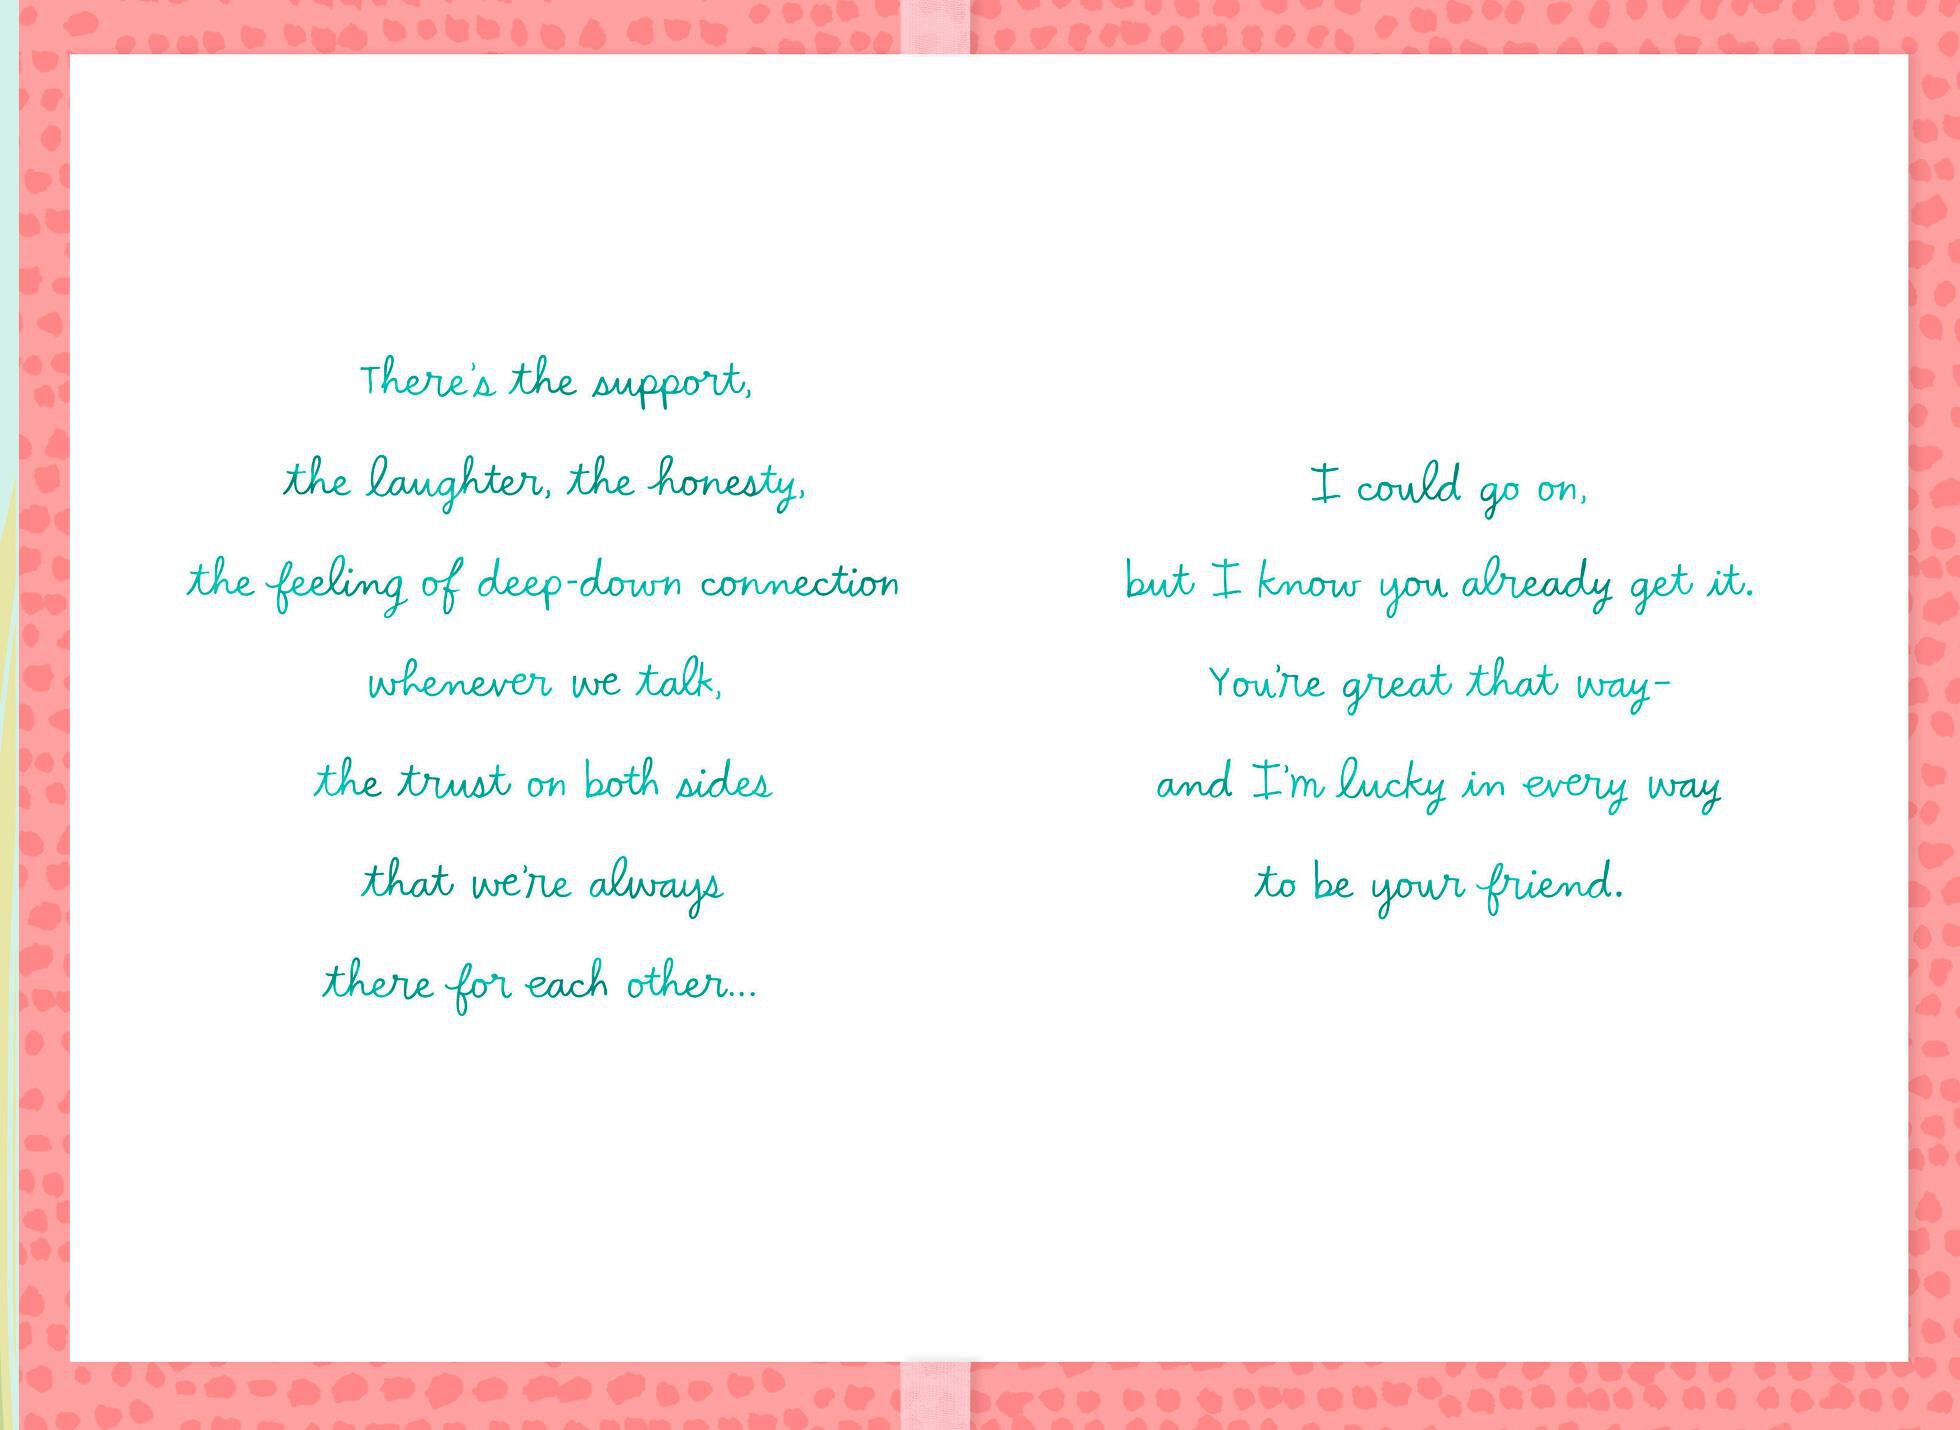 There's the support,
the laughter, the honesty,
the feeling of deep-down connection
whenever we talk,
the trust on both sides
that we're always
there for each other...
I could go on,
but I know you already get it.
You're great that way-
and I'm lucky in every way
to be your friend.